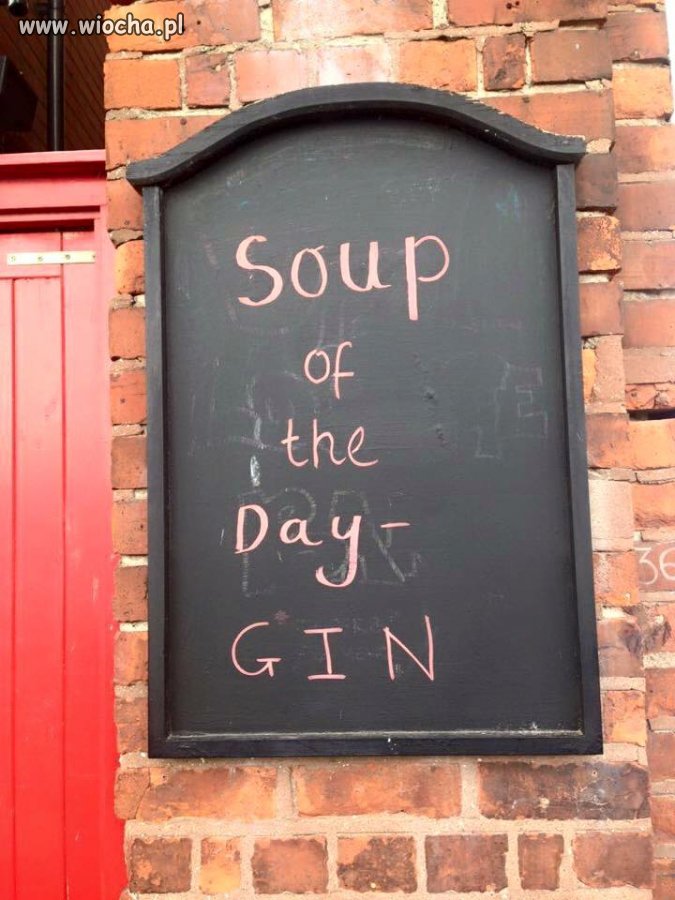 www.wiocha.pl
Soup
of
the
Day-
GIN
36